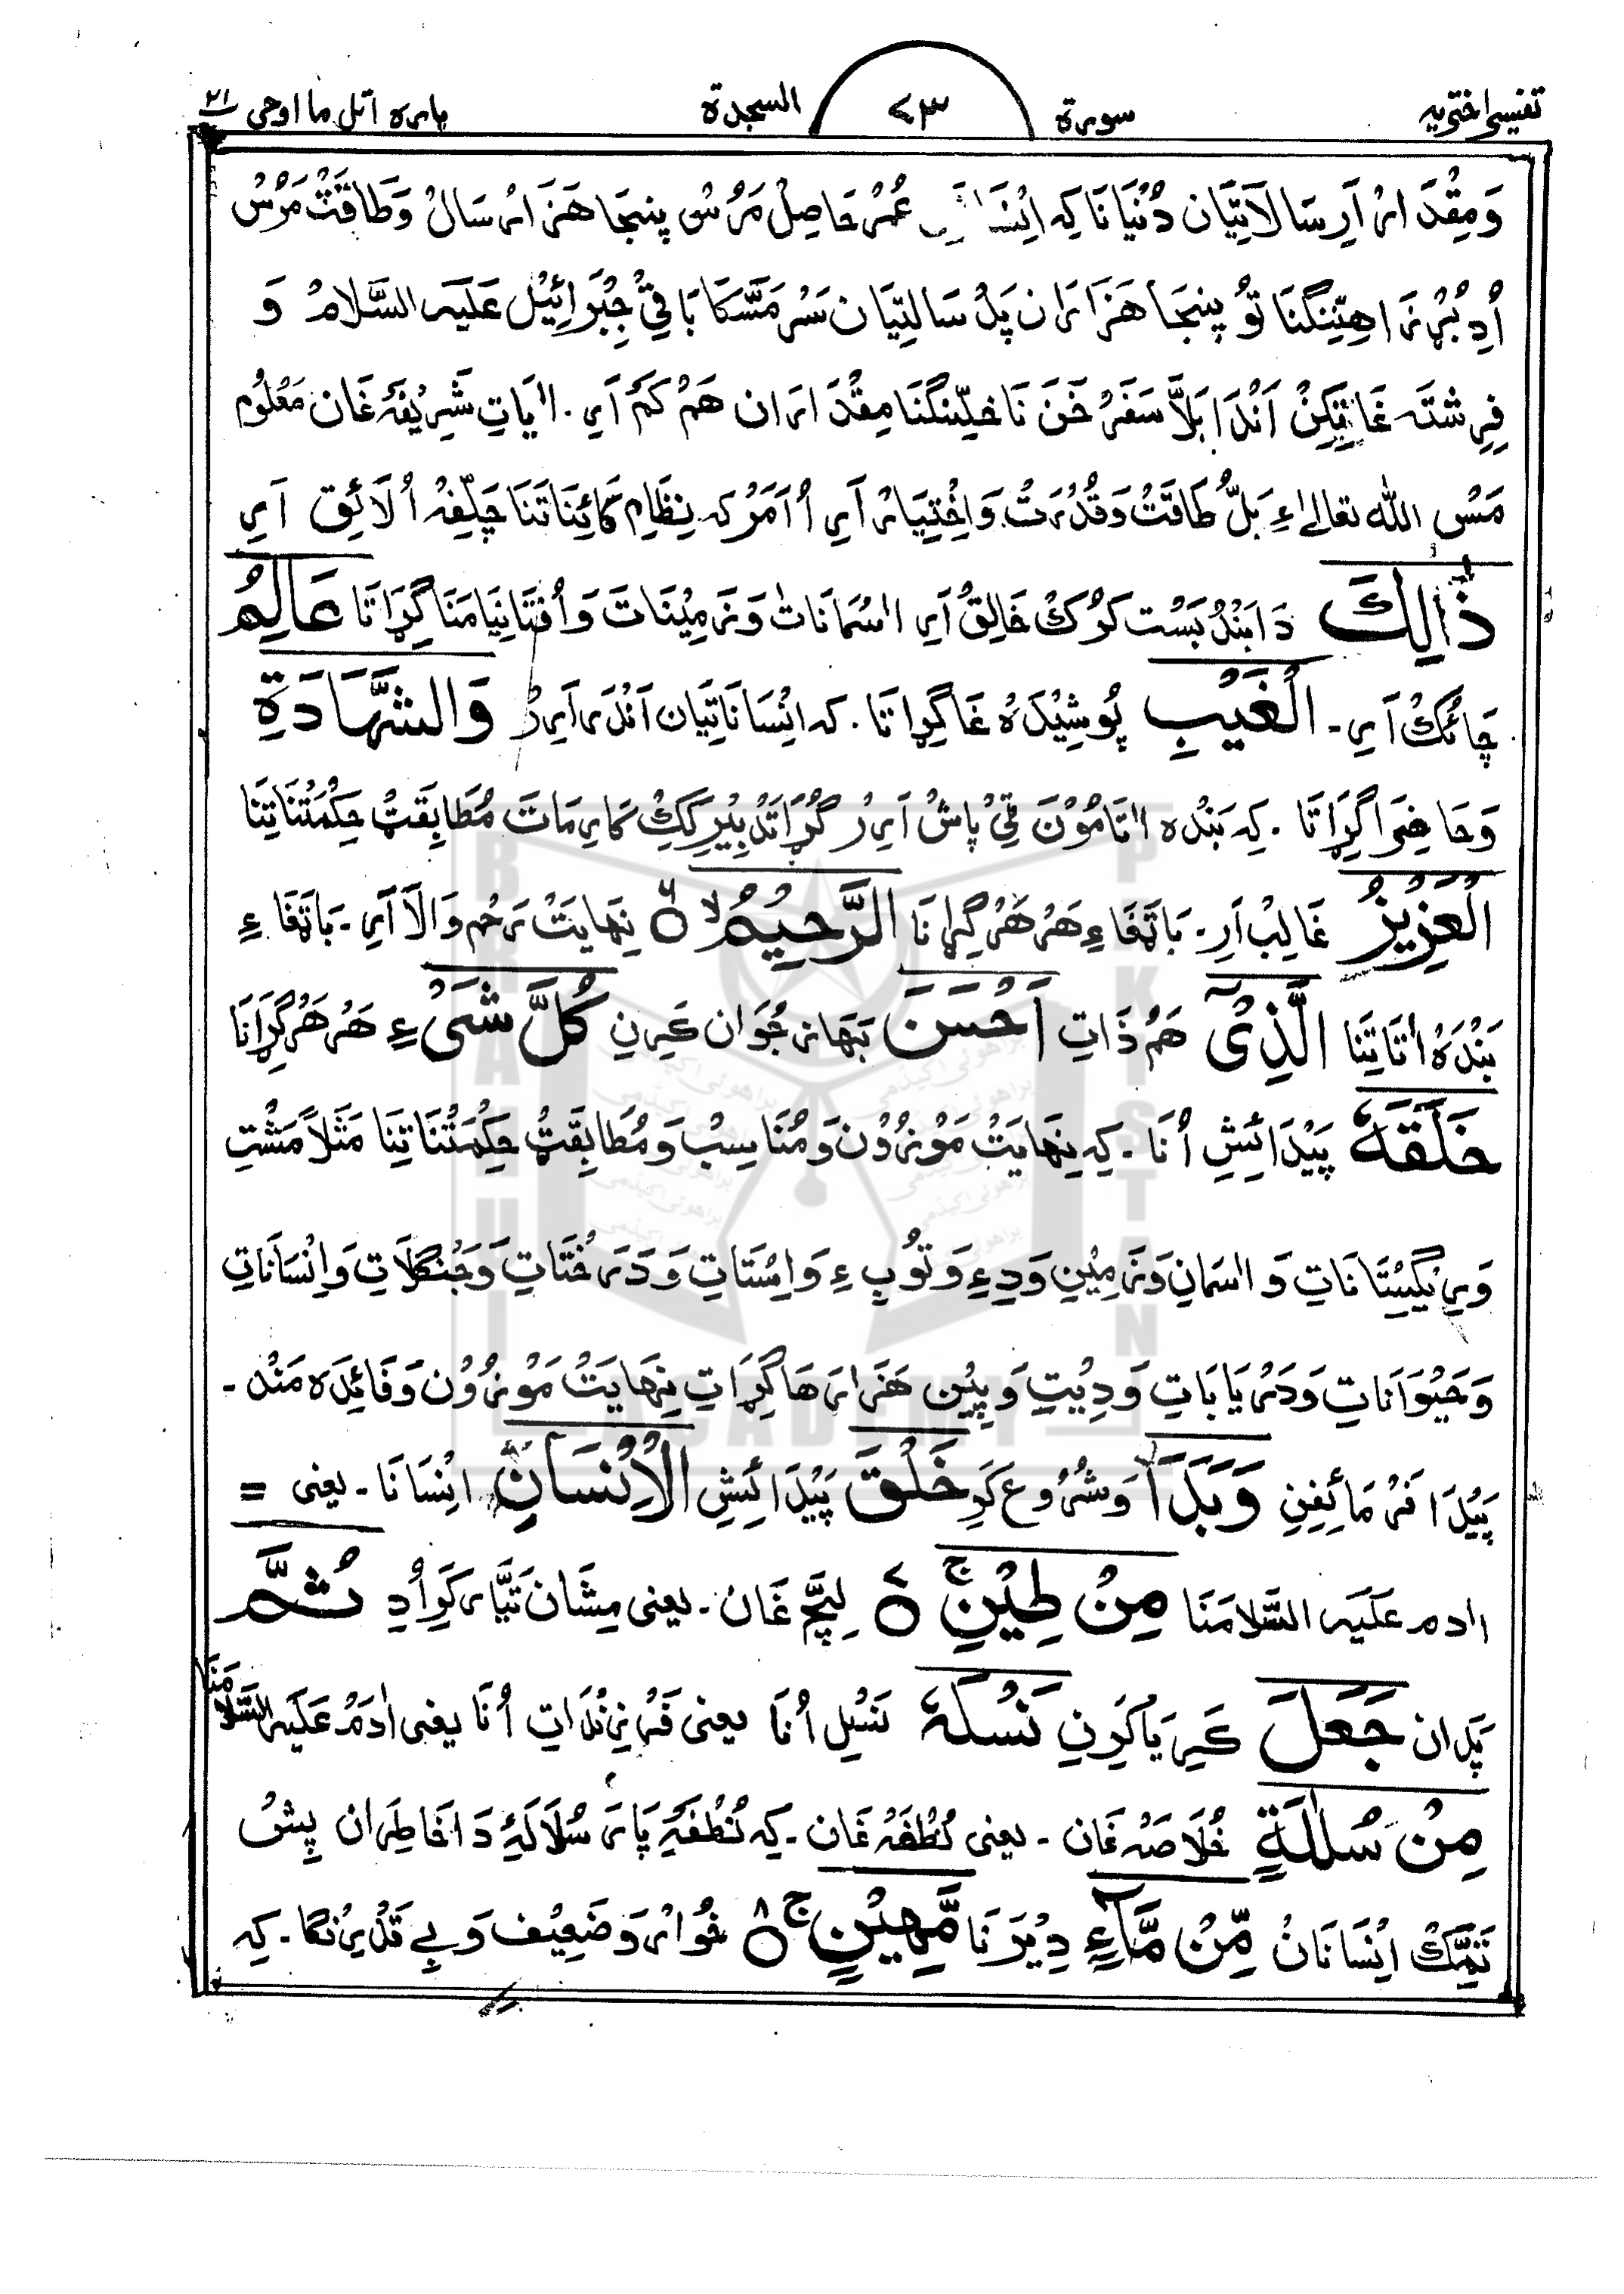 تفسیر اختریه سورة ۷۳ السجدة پاره اتل ما اوحی ۲۱
وَمِقْدَارْ اَرِ سَالَاتِیَّان دُنْیَانَا کِه عُمْرْ حَاصِلْ مَرُسْ پنجَا هَزَارْ سَالْ وَطَاقَتْ مَرُسْ
اُدِ بُرْزَاهِتِنِنْگنَا تُو پنجَا هَزَارَان پَلْ سَالِتِیَان سَرْ مَسَّکَا بَاقِیْ جِبْرَائِیْل عَلَیه السَّلامْ وَ
فِرِشتَه غَاتِکِنْ اَنْدَا بَلَّا سَفَرْ خَنَ نَا خِلِّنِنْگنَا مِقْدَارَان هَمْ کَمْ اَرِ. اٰیَاتِ شَرِیْفَهْ غَان مَعْلُوم
مَسْ اللّٰه تعالےٰ اءِ بَلُّ طَاقَتْ وَقُدْرَتْ وَاِخْتِیَارْ اَرِ اُ اَمَرْ که نِظَامِ کَائِنَاتَنَا چَلِّفِه اُ لَائِق اَرِ
ذٰلِكَ دَا بَنْدُبَسْت کَرُکْ خَالِقْ اَرِ اٰسْمَانَاتْ وَزَمِیْنَاتَ وَاُفْتَا نِیَامَنَا گِڑَاتَا عَالِمُ
چَائکْ اَرِ۔ الْغَیْبِ پُوشِیْدَهْ غَا گِڑَاتَا. که اِنْسَانَاتِیَان اَنْدَر اَرِرْ وَالشَّهَادَةِ
وَحَاضِرَا گِڑَاتَا . کِه بَنْدَه اٰتَا مُوْنَ قِیْ پَاشْ اَرِرْ گُڑَا تَدْبِیْر کِكْ کَارِمَاتَ مُطَابِقَتْ حِکْمَتْنَا تِنَا
الْعَزِیْزُ غَالِبْ اَرِ۔ بَاتَفَاءِ هَرْ هَرْ گِڑَانَا الرَّحِیْمُ ۙ ۶ نِهَایَتْ رَحْم وَالَا اَرِ۔ بَاتَفَاءِ
بَنْدَهْ اُتَا تِنَا الَّذِیْ هَمْ ذَاتِ اَحْسَنَ بَهَاز جُوَان کَرِنِ کُلَّ شَیْءٍ هَرْ هَرْ گِڑَانَا
خَلَقَهٗ پَیْدَائِشِ اُنَا . کِه نِهَایَتْ مَوْزُوْن وَمُنَاسِبْ وَمُطَابِقَتْ حِکْمَتْنَا تِنَا مَثَلاً مَشْتِ
وَرِیْگِسْتَانَاتِ وَاٰسْمَانِ وَزَمِیْنِ وَدِءِ وَتُوْبِءِ وَاِسْتَاتِ وَدَرَخْتَاتِ وَجَنْگلَاتِ وَاِنْسَانَاتِ
وَحَیْوَانَاتِ وَدَرْیَابَاتِ وَدِیْتِ وَپِیْنِ هَزَارهَا گِڑَاتِ نِهَایَتْ مَوْزُوْن وَفَائِدَه مَنْد۔
پَیْدَا فَرْمَائِفِنِ وَبَدَاَ وَشُرُوع کَرِ خَلْقَ پَیْدَائِشِ الْاِنْسَانِ اِنْسَانَا۔ یعنی =
اٰدم عَلَیه السَّلامَنَا مِنْ طِیْنٍ ۚ ۷ لِچَّ غَان۔ یعنی مِشَان تَیَّار کَرِ اُدِ ثُمَّ
پَدَان جَعَلَ کَرِ یَا کَرِنِ نَسْلَهٗ نَسْلِ اُنَا یعنی فَرْزِنْدَاتِ اُنَا یعنی اٰدَمْ عَلَیه السَّلامَنَا
مِنْ سُلٰلَةٍ خُلَاصَه غَان۔ یعنی نُطْفَهْ غَان۔ کِه نُطْفَهْ پَارَ سُلَالَهْ دَا خَاطِرَان پِشْ
تَمِّكْ اِنْسَانَانْ مِّنْ مَّآءٍ دِیْرَنَا مَّهِیْنٍ ۚ ۸ خُوَار وَضَعِیْف وَبے قَدْرِنْگا۔ کِه